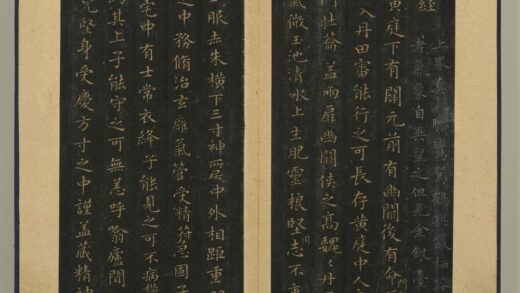 經
自與望之但見金銀臺
黃庭下有關元前有幽闕後有
入丹田審能行之可長存黃庭中人
壯籥蓋兩扉幽闕俠之高巍巍丹
氣徹玉池清水上生肥靈根堅志不衰
服赤朱橫下三寸神所居中外相距重
之中務脩治玄膺氣管受精符急固子
宅中有士常衣絳子能見之可不病橫
為其上子能守之可無恙呼噏廬間
完堅身受慶方寸之中謹蓋藏精神